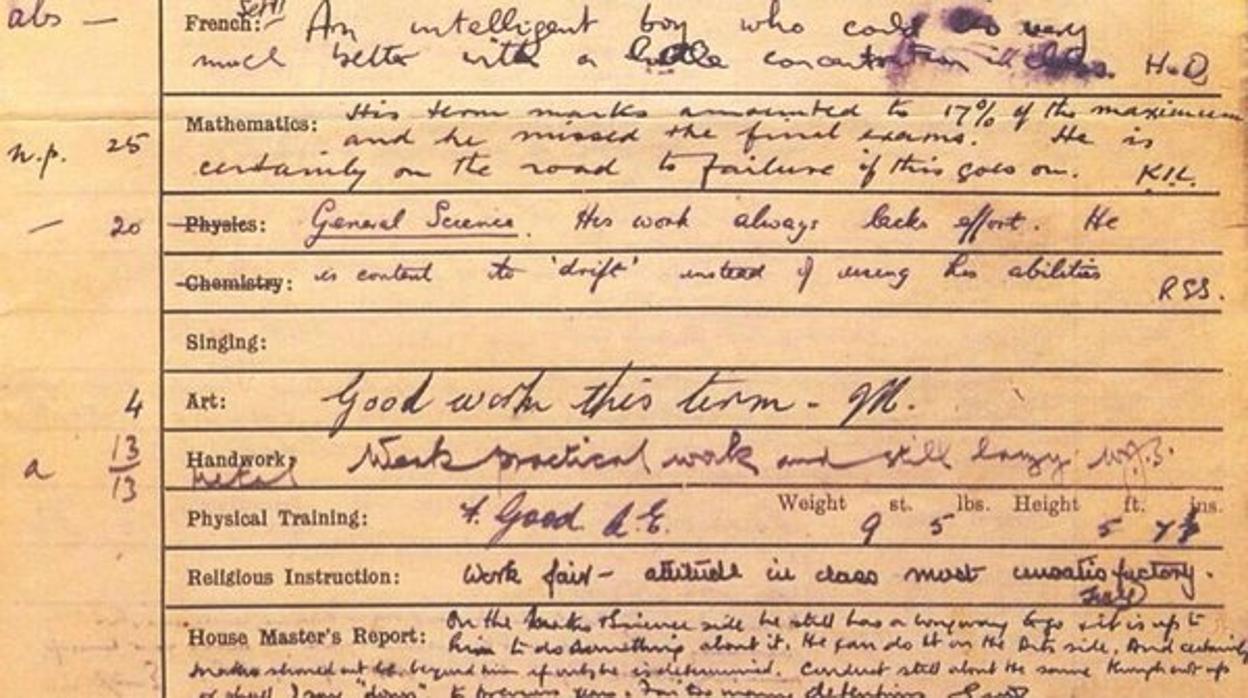 abs — French: Set II An intelligent boy who could do very
much better with a little concentration in class. H.D.
Mathematics: His term marks amounted to 17% of the maximum
n.p. 25 and he missed the final exams. He is
certainly on the road to failure if this goes on. K.I.L.
— 20 Physics: General Science. His work always lacks effort. He
Chemistry: is content to 'drift' instead of using his abilities RSS.
Singing:
4 Art: Good work this term - JM.
a 13/13 Handwork: Weak practical work and still lazy
Metal
Physical Training: F. Good. A.E. Weight 9 st. 5 lbs. Height 5 ft. 7½ ins.
Religious Instruction: Work fair - attitude in class most unsatisfactory.
House Master's Report: On the Maths & Science side he still has a long way to go & it is up to
him to do something about it. He can do it on the Arts side. And certainly
Maths should not be beyond him if only he is determined. Conduct still about the same though not up
or shall I say "down" to previous years. Far too many detentions